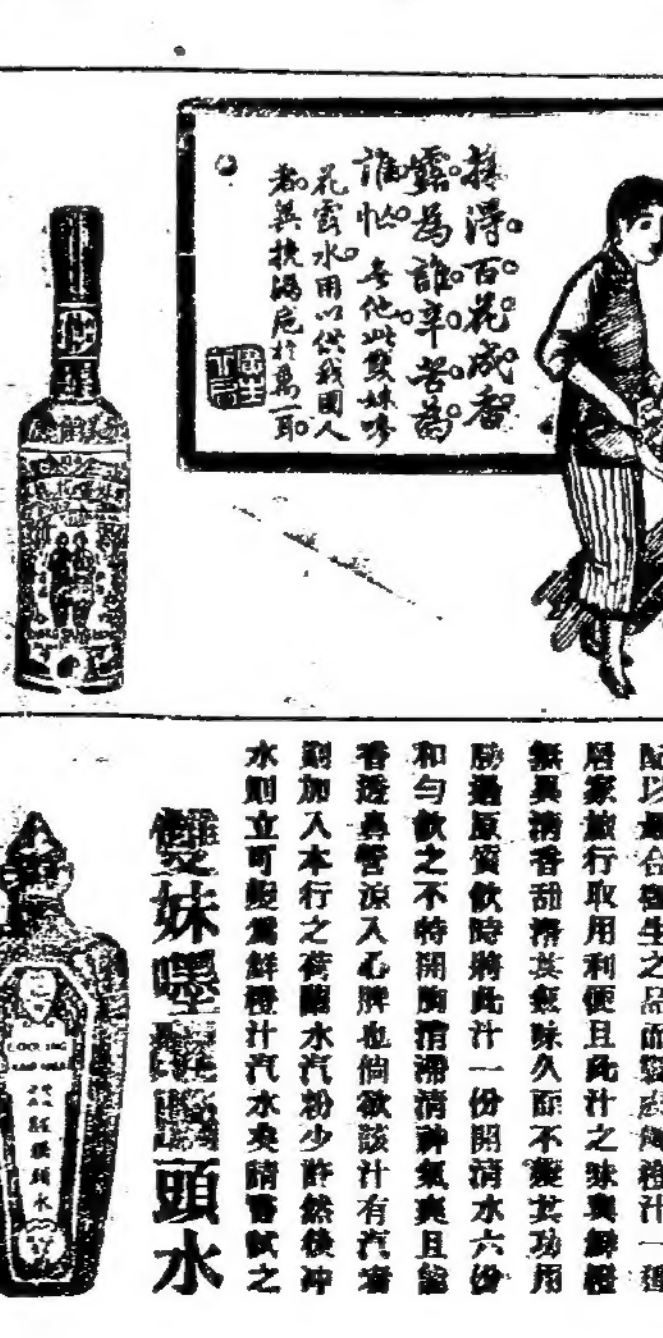 採得百花成香
露為誰辛苦為
誰忙 無他此雙妹嘜
花露水用以供我國人
者冀挽漏卮於萬一耳
配以最合衛生之品而製成鮮橙汁一種
居家旅行取用利便且此汁之味與鮮橙
無異清香甜滯其氣味久而不變其功用
勝過原質飲時將此汁一份開清水六份
和勻飲之不特開胸消滯清神氣爽且能
香透鼻管涼入心脾也倘欲該汁有汽者
則加入本行之荷蘭水汽粉少許然後沖
水則立可變為鮮橙汁汽水矣請嘗試之
雙妹嘜頭水
COOLING